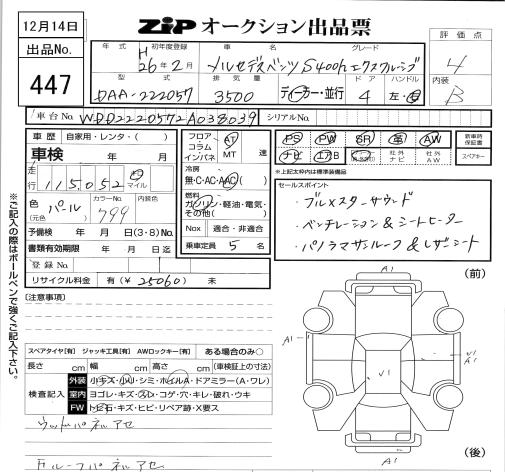 12月14日
ZIP オークション出品票
出品No.
447
年式 初年度登録 車名 グレード
H26年2月 メルセデスベンツ S400hエクスクルーシブ
型式 排気量 ドア ハンドル
DAA-222057 3500 ディーラー・並行 4 左・右
評価点
4
内装
B
車台No. WDD2220572A038039 シリアルNo.
車歴 自家用・レンタ・( )
車検 年 月
走行 115,052 マイル
色(元色) パール カラーNo. 799 内装色
予備検 年 月 日(3・8)No.
書類有効期限 年 月 日迄
登録No.
リサイクル料金 有(¥25060) 未
フロア コラム インパネ AT MT 速
冷房 無・C・AC・AAC
燃料 ガソリン・軽油・電気・その他( )
Nox 適合・非適合
乗車定員 5 名
PS PW SR 革 AW
ナビ エアB 社外ナビ 社外AW
新車時保証書
スペアキー
※上記太枠内は標準装備品
セールスポイント
・ブルメスターサウンド
・ベンチレーション&シートヒーター
・パノラマサンルーフ&レザーシート
※ご記入の際はボールペンで強くご記入下さい。
[注意事項]
スペアタイヤ[有] ジャッキ工具[有] AWロックキー[有] ある場合のみ○
長さ cm 幅 cm 高さ cm (車検証上の寸法)
検査記入
外装 小キズ・小U・シミ・ホイルA・ドアミラー(A・ワレ)
室内 ヨゴレ・キズ・スレ・コゲ・穴・キレ・破れ・ウキ
FW トビ石・キズ・ヒビ・リペア跡・X要ス
ウッドパネルアセ
(前)
A1
A1
V1
V1
A1
A1
(後)